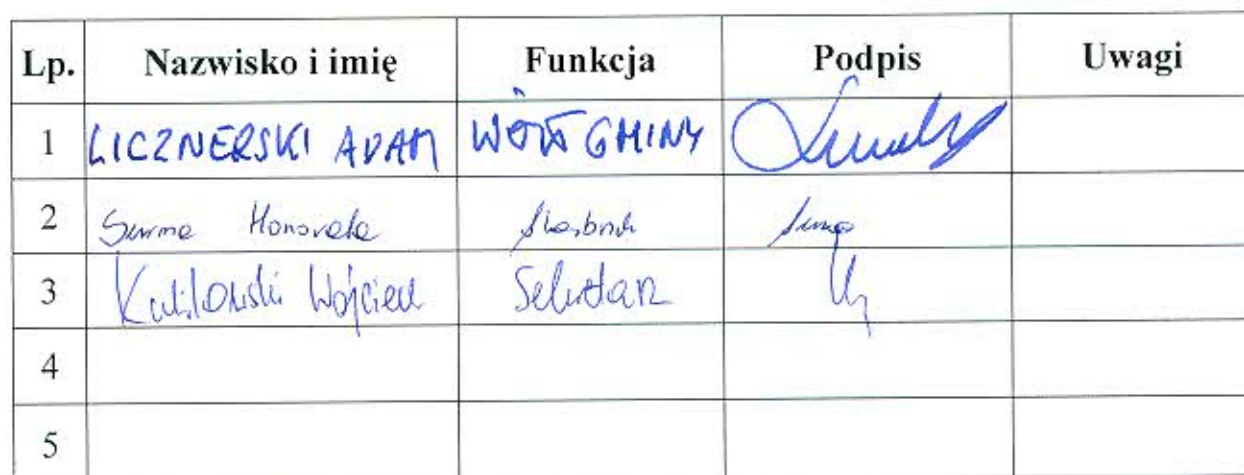 Lp. Nazwisko i imię Funkcja Podpis Uwagi
1 LICZNERSKI ADAM WÓJT GMINY
2 Surma Honorata Skarbnik
3 Wojciech Sekretarz
4
5